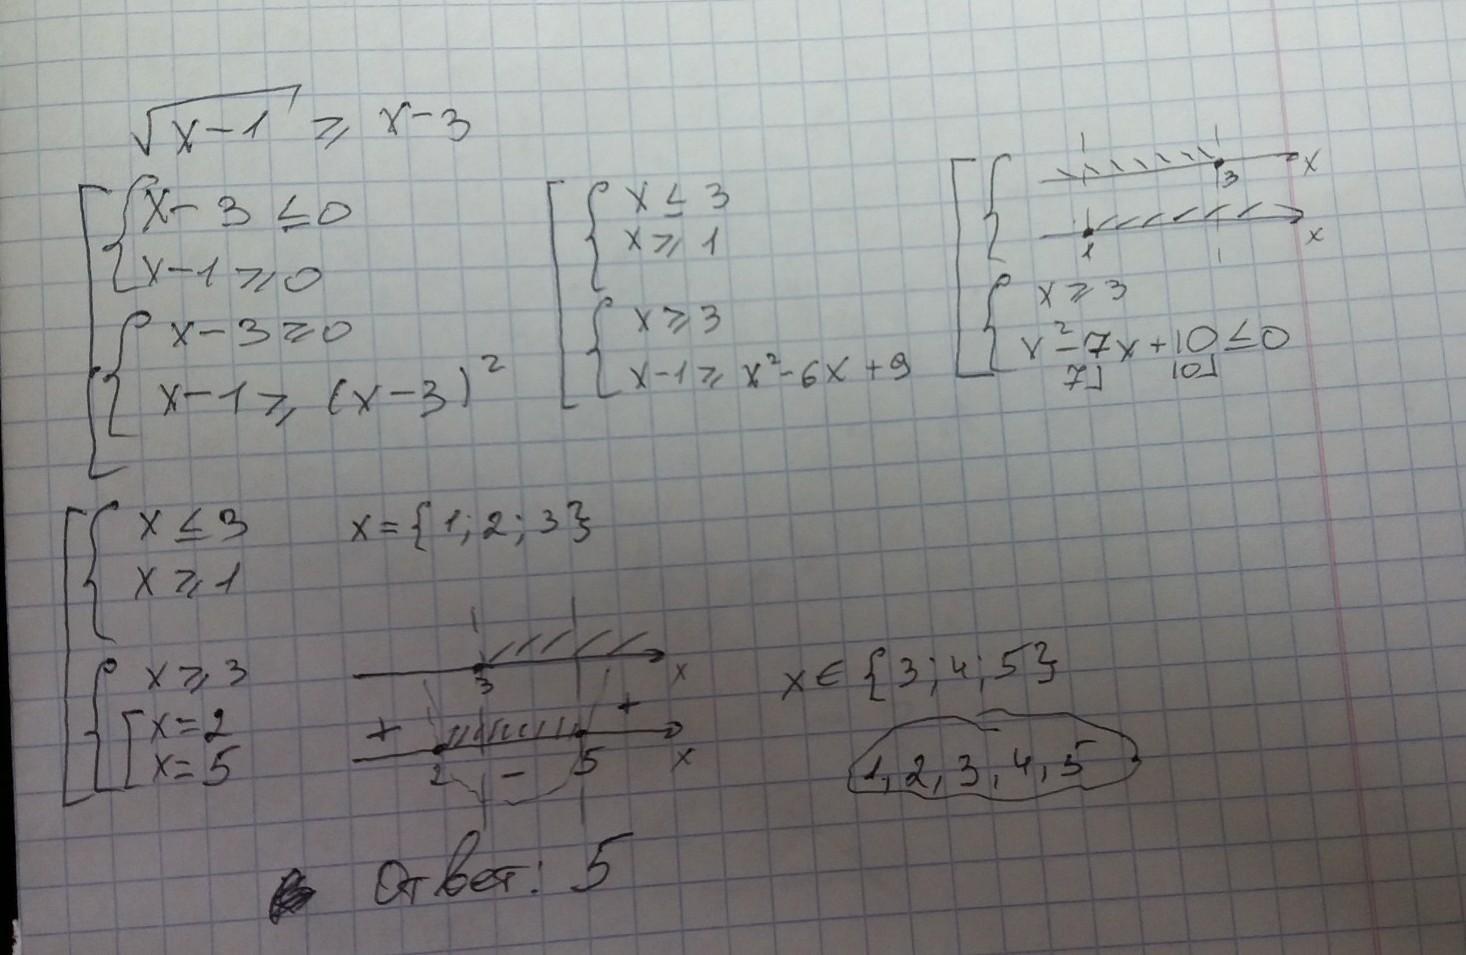 √x-1 ⩾ x-3
[ { x-3 ≤ 0
x-1 ⩾ 0
{ x-3 ⩾ 0
x-1 ⩾ (x-3)²
[ { x ≤ 3
x ⩾ 1
{ x ⩾ 3
x-1 ⩾ x²-6x+9
[ { 3 x
1 x
{ x ⩾ 3
x²-7x+10 ≤ 0
7 10
[ { x ≤ 3
x ⩾ 1
x={1;2;3}
{ x ⩾ 3
[ x=2
x=5
3 x
+ 2 - 5 + x
x∈{3;4;5}
1, 2, 3, 4, 5
Ответ: 5